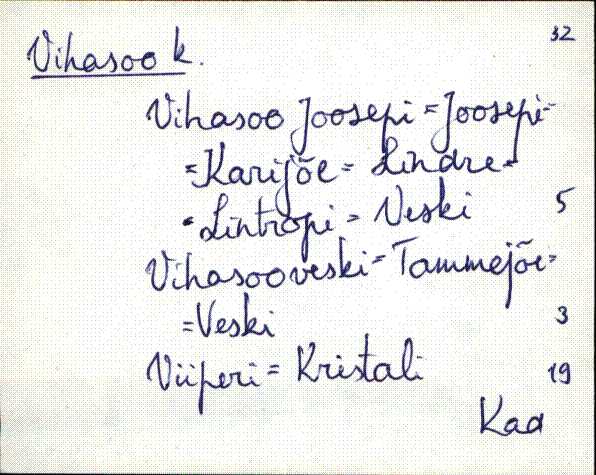 32
Vihasoo k.
Vihasoo Joosepi = Joosepi =
= Karijõe = Lindre =
= Lintropi = Veski 5
Vihasooveski = Tammejõe =
= Veski 3
Viiperi = Kristali 19
Kad